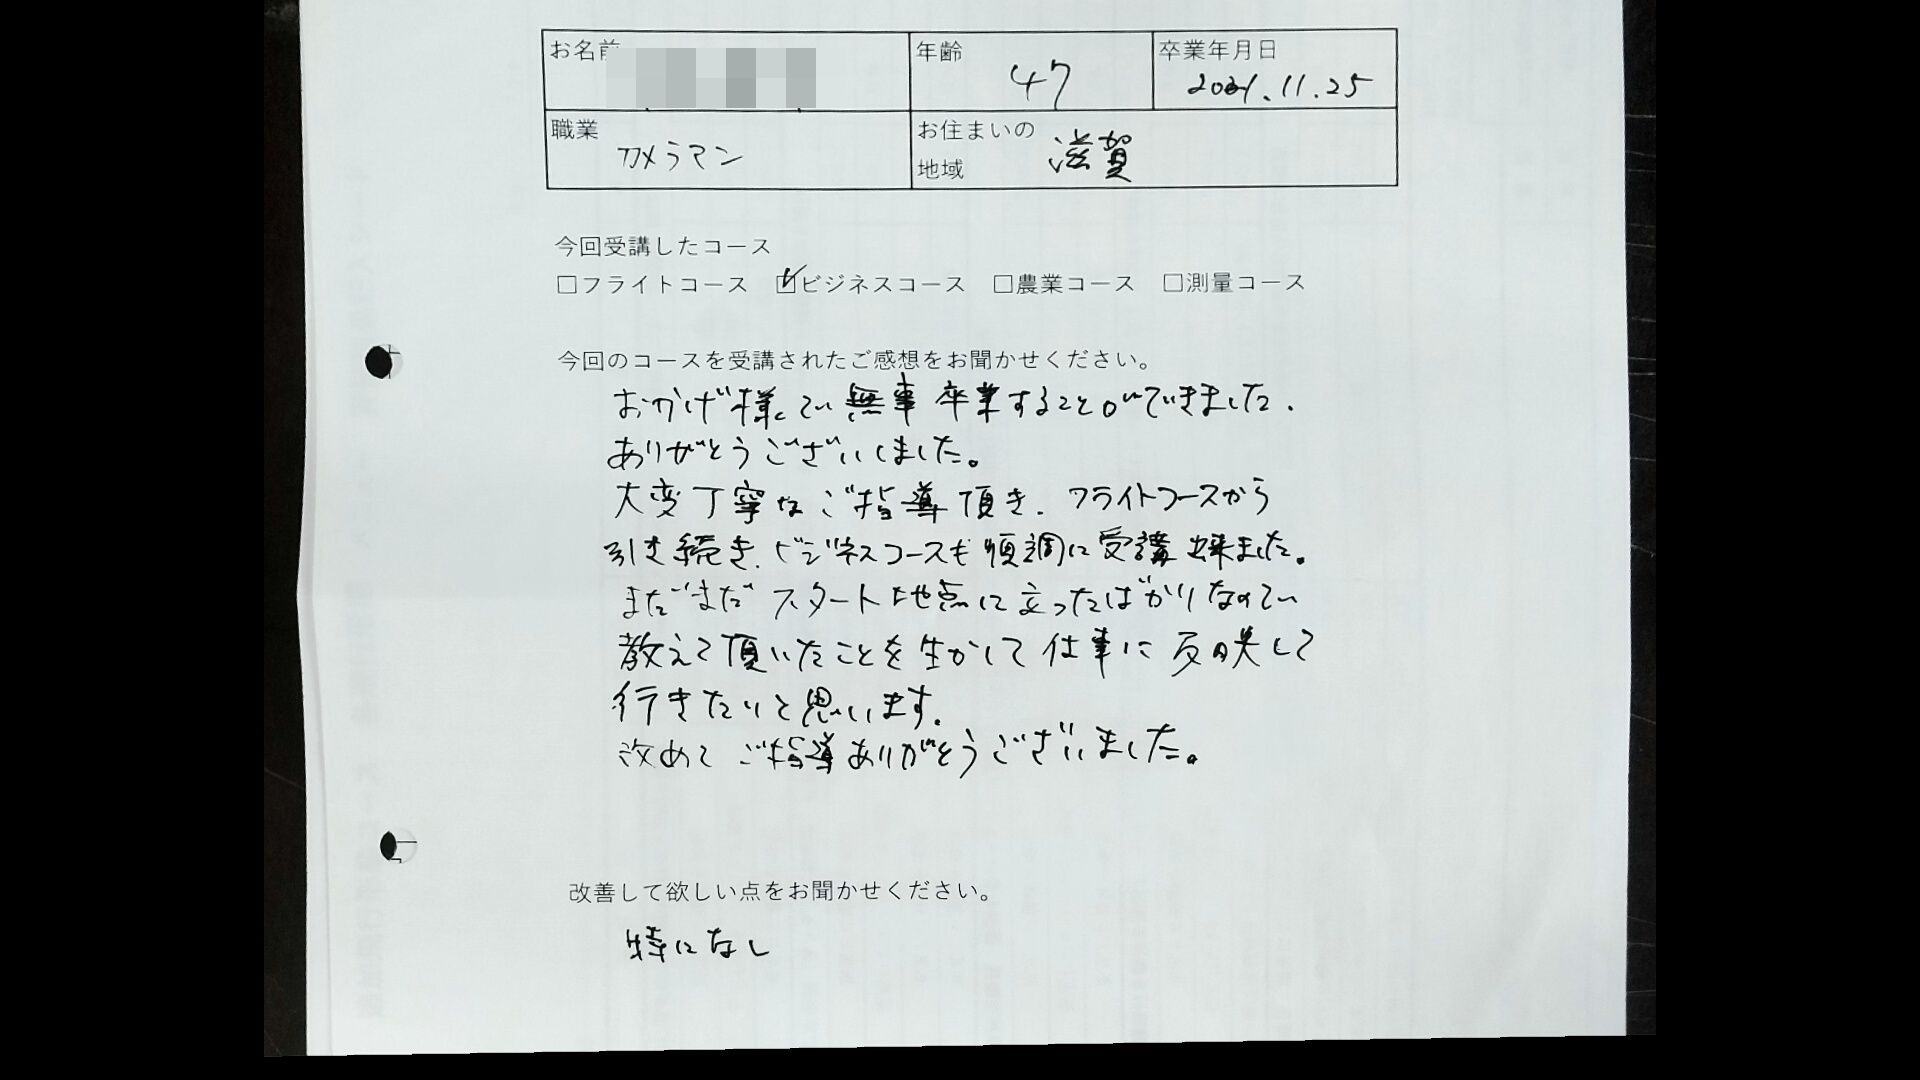 お名前
年齢
47
卒業年月日
2021.11.25
職業
カメラマン
お住まいの
地域
滋賀
今回受講したコース
□フライトコース ☑ビジネスコース □農業コース □測量コース
今回のコースを受講されたご感想をお聞かせください。
おかげ様で無事卒業することができました.
ありがとうございしました。
大変丁寧なご指導頂き、フライトコースから
引き続き、ビジネスコースも順調に受講出来ました。
まだまだスタート地点に立ったばかりなので
教えて頂いたことを生かして仕事に反映して
行きたいと思います.
改めてご指導ありがとうございました。
改善して欲しい点をお聞かせください。
特になし